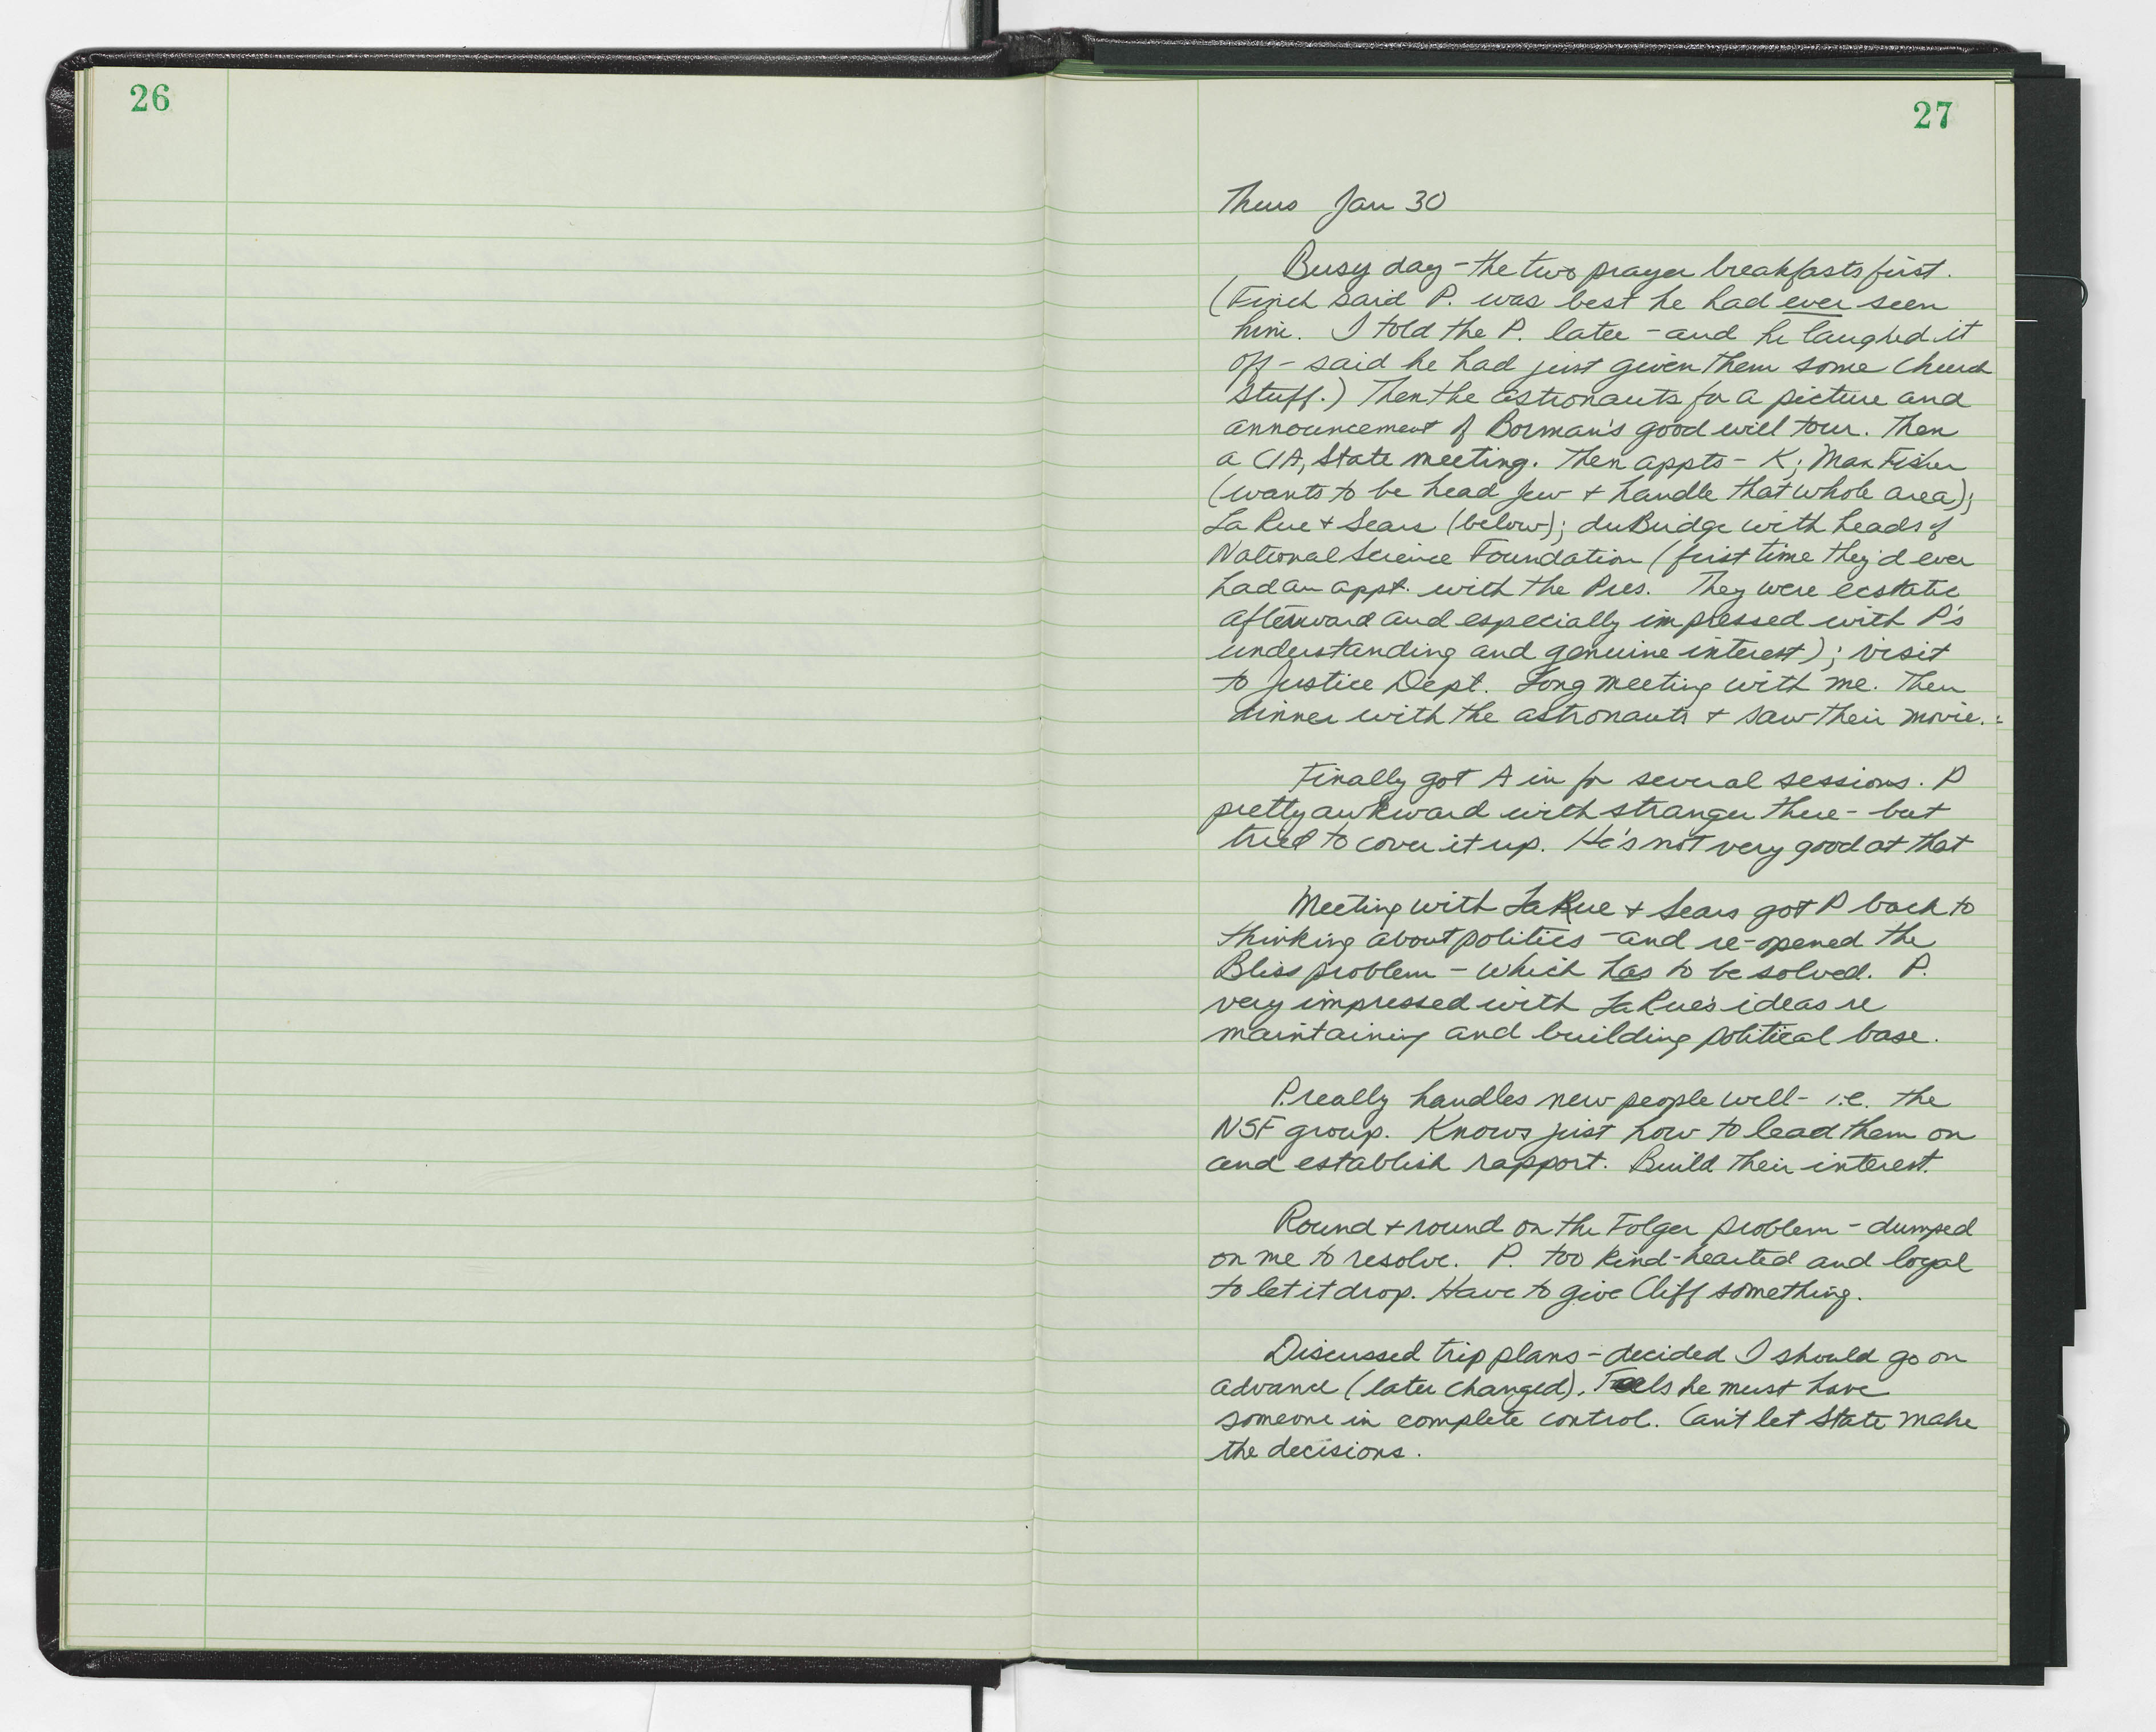 26
27
Thurs Jan 30
Busy day - the two prayer breakfasts first.
(Finch said P. was best he had ever seen
him. I told the P. later - and he laughed it
off - said he had just given them some church
stuff.) Then the astronauts for a picture and
announcement of Borman's good will tour. Then
a CIA, State meeting. Then appts - K; Max Fisher
(wants to be head Jew + handle that whole area);
La Rue + Sears (below); duBridge with heads of
National Science Foundation (first time they'd ever
had an appt. with the Pres. They were ecstatic
afterward and especially impressed with P's
understanding and genuine interest); visit
to Justice Dept. Long meeting with me. Then
dinner with the astronauts + saw their movie.
Finally got A in for several sessions. P
pretty awkward with stranger there - but
tried to cover it up. He's not very good at that
Meeting with LaRue + Sears got P back to
thinking about politics - and re-opened the
Bliss problem - which has to be solved. P.
very impressed with LaRue's ideas re
maintaining and building political base.
P. really handles new people well - i.e. the
NSF group. Knows just how to lead them on
and establish rapport. Build their interest.
Round + round on the Folger problem - dumped
on me to resolve. P. too kind-hearted and loyal
to let it drop. Have to give Cliff something.
Discussed trip plans - decided I should go on
advance (later changed). Feels he must have
someone in complete control. Can't let State make
the decisions.